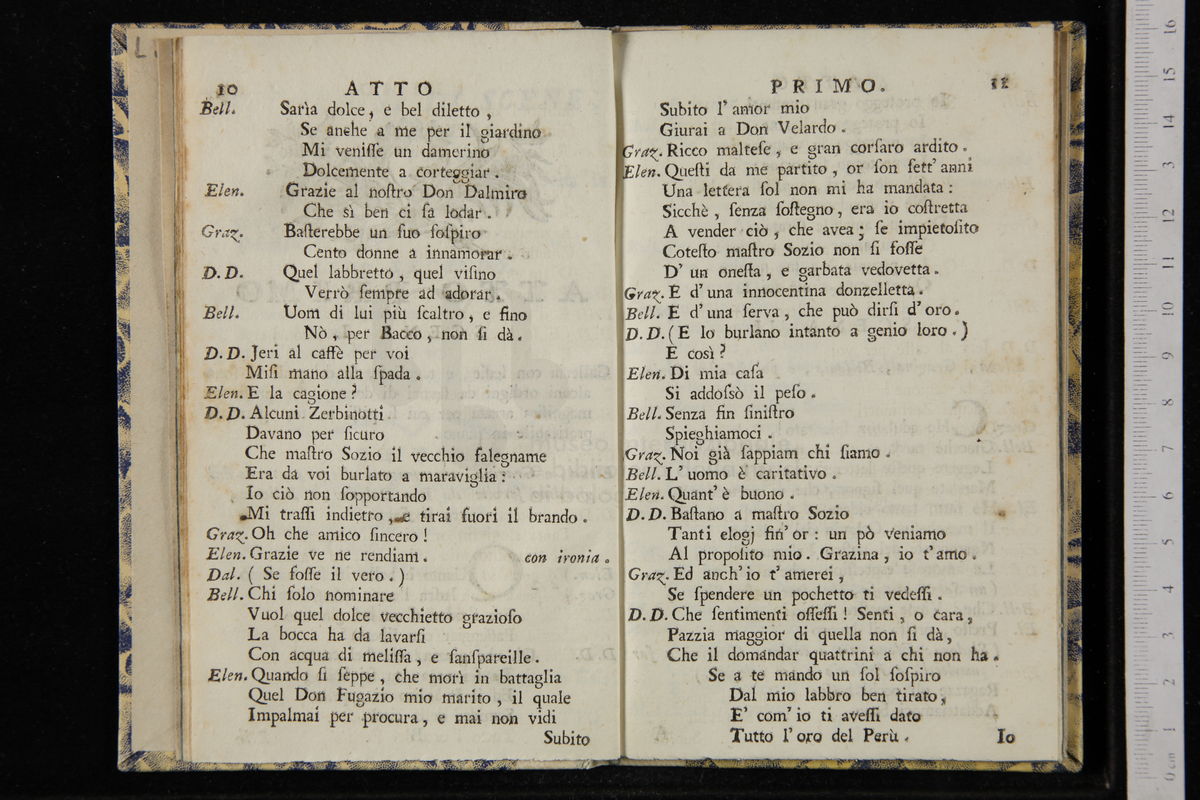 L.
10 ATTO
Bell. Sarìa dolce, e bel diletto,
Se anche a me per il giardino
Mi veniſſe un damerino
Dolcemente a corteggiar.
Elen. Grazie al noſtro Don Dalmiro
Che sì ben ci fa lodar.
Graz. Baſterebbe un ſuo ſoſpiro
Cento donne a innamorar.
D. D. Quel labbretto, quel viſino
Verrò ſempre ad adorar.
Bell. Uom di lui più ſcaltro, e fino
Nò, per Bacco, non ſi dà.
D. D. Jeri al caffè per voi
Miſi mano alla ſpada.
Elen. E la cagione?
D. D. Alcuni Zerbinotti
Davano per ſicuro
Che maſtro Sozio il vecchio falegname
Era da voi burlato a maraviglia:
Io ciò non ſopportando
Mi traſſi indietro, e tirai fuori il brando.
Graz. Oh che amico ſincero!
Elen. Grazie ve ne rendiam. con ironia.
Dal. ( Se foſſe il vero. )
Bell. Chi ſolo nominare
Vuol quel dolce vecchietto grazioſo
La bocca ha da lavarſi
Con acqua di meliſſa, e ſanſpareille.
Elen. Quando ſi ſeppe, che morì in battaglia
Quel Don Fugazio mio marito, il quale
Impalmai per procura, e mai non vidi
Subito
PRIMO. 11
Subito l'amor mio
Giurai a Don Velardo.
Graz. Ricco malteſe, e gran corſaro ardito.
Elen. Queſti da me partito, or ſon ſett'anni
Una lettera ſol non mi ha mandata:
Sicchè, ſenza ſoſtegno, era io coſtretta
A vender ciò, che avea; ſe impietoſito
Coteſto maſtro Sozio non ſi foſſe
D'un oneſta, e garbata vedovetta.
Graz. E d'una innocentina donzelletta.
Bell. E d'una ſerva, che può dirſi d'oro.
D. D. ( E lo burlano intanto a genio loro. )
E così?
Elen. Di mia caſa
Si addoſsò il peſo.
Bell. Senza fin ſiniſtro
Spieghiamoci.
Graz. Noi già ſappiam chi ſiamo.
Bell. L'uomo è caritativo.
Elen. Quant'è buono.
D. D. Baſtano a maſtro Sozio
Tanti elogj fin'or: un pò veniamo
Al propoſito mio. Grazina, io t'amo.
Graz. Ed anch'io t'amerei,
Se ſpendere un pochetto ti vedeſſi.
D. D. Che ſentimenti offeſſi! Senti, o cara,
Pazzia maggior di quella non ſi dà,
Che il domandar quattrini a chi non ha.
Se a te mando un ſol ſoſpiro
Dal mio labbro ben tirato,
E' com'io ti aveſſi dato
Tutto l'oro del Perù.
Io
0 cm 1 2 3 4 5 6 7 8 9 10 11 12 13 14 15 16